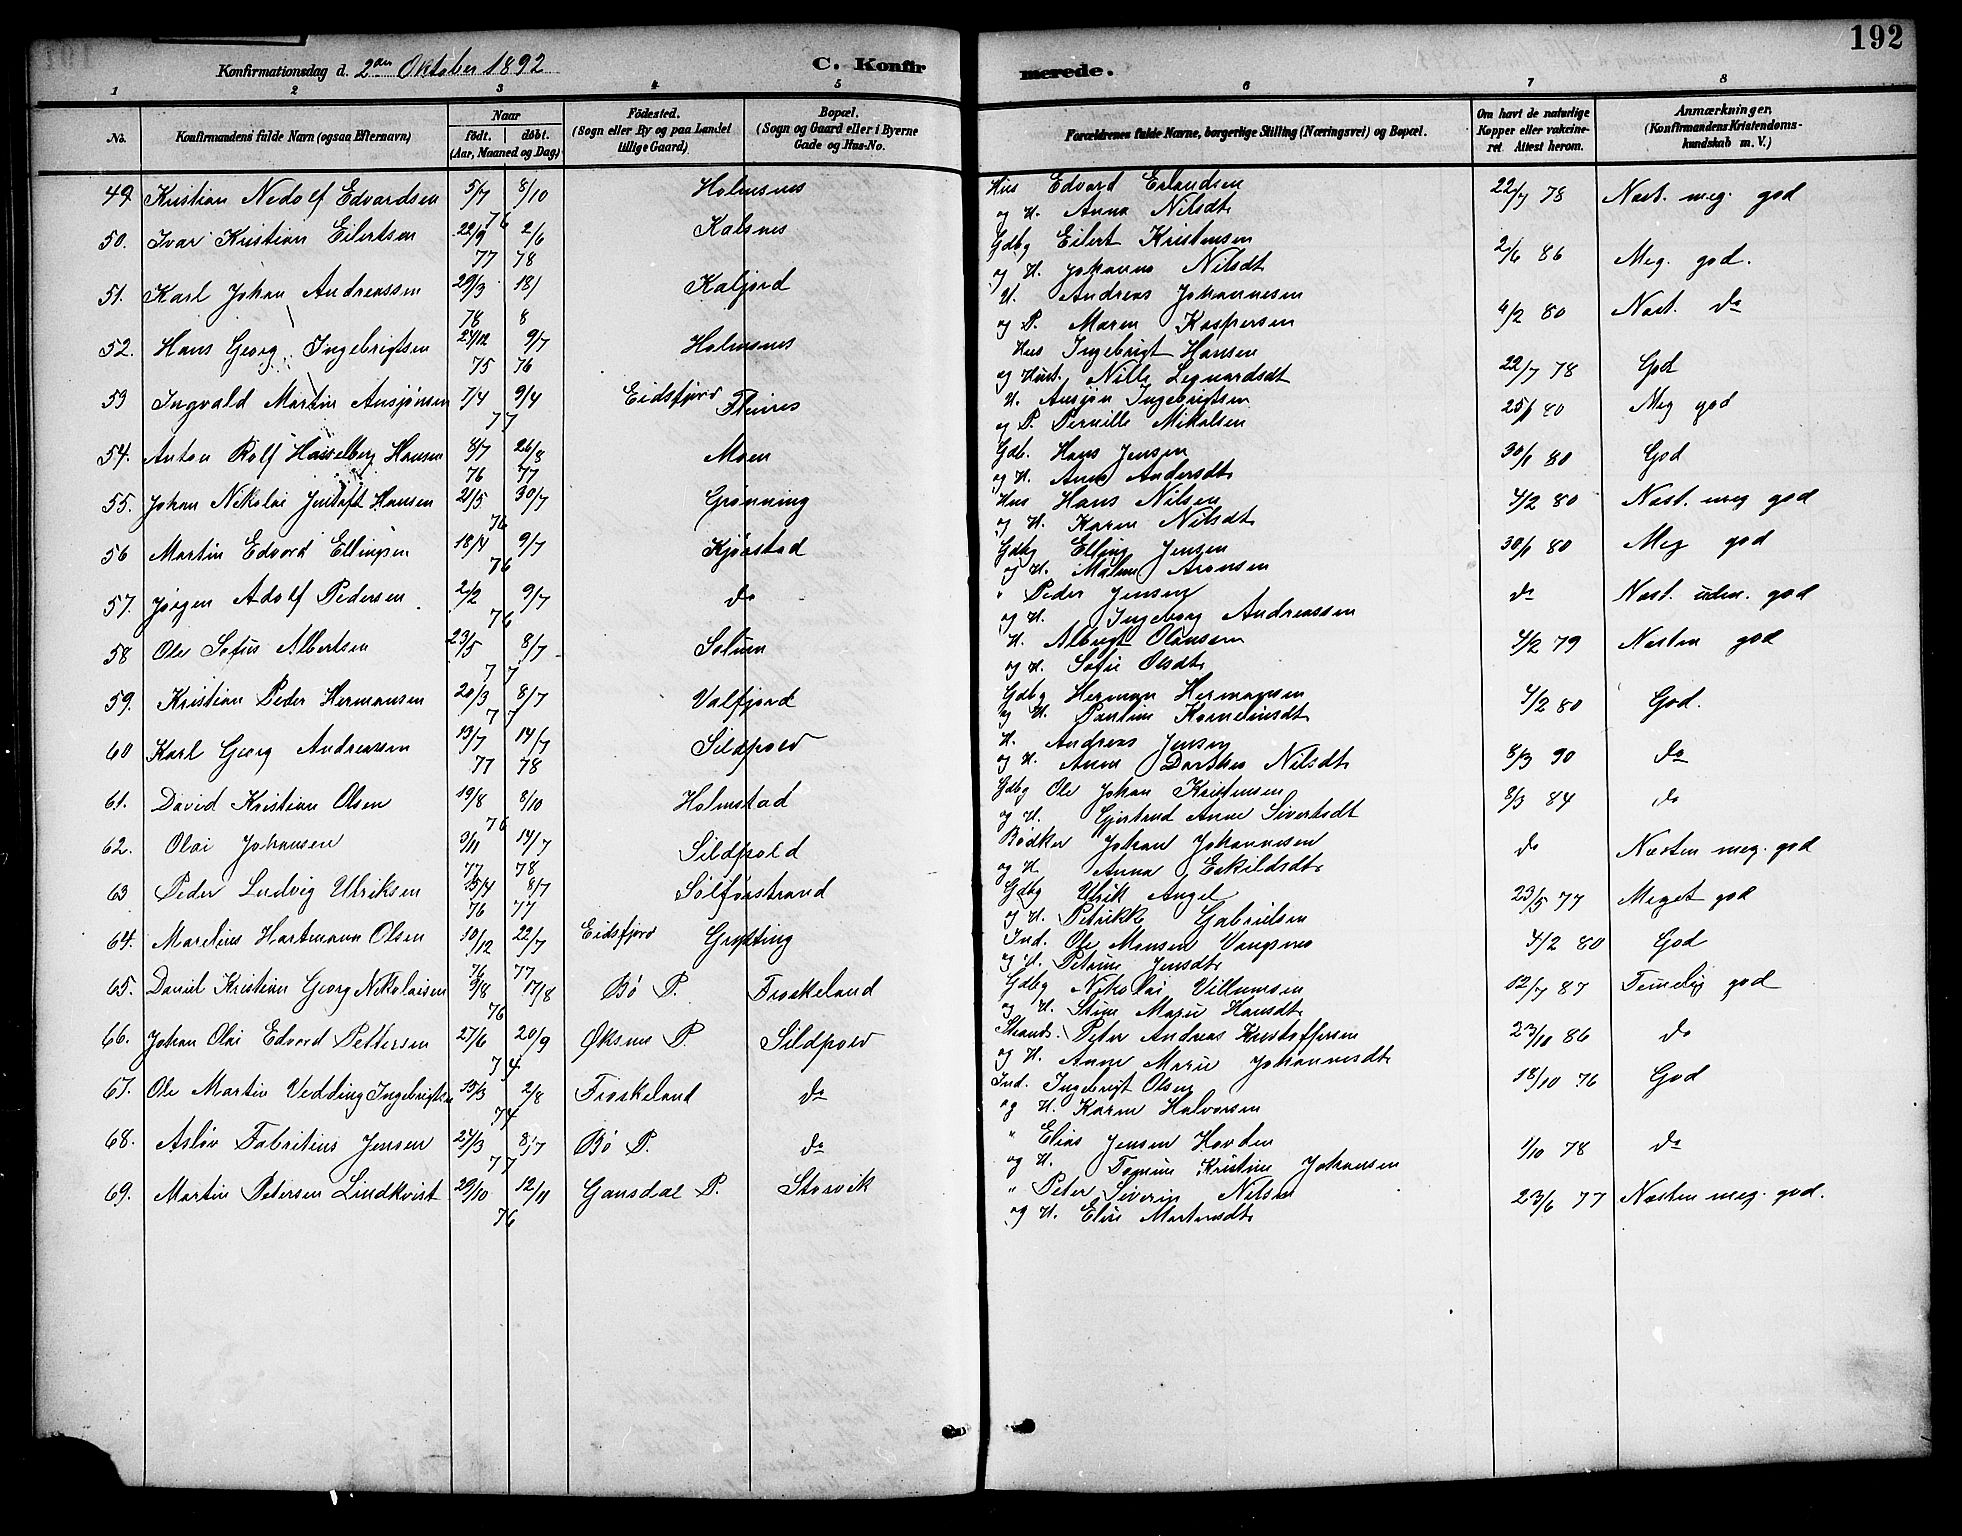 192
Konfirmationsdag d. 2den Oktober 1892 C. Konfirmerede.
1 2 3 4 5 6 7 8
No. Konfirmandens fulde Navn (ogsaa Efternavn) Naar født. døbt. (Aar, Maaned og Dag) Fødested. (Sogn eller By og paa Landet tillige Gaard) Bopæl. (Sogn og Gaard eller i Byerne Gade og Hus-No. Forældrenes fulde Navne, borgerlige Stilling (Næringsvei) og Bopæl. Om havt de naturlige Kopper eller vakcineret. Attest herom. Anmærkninger, (Konfirmandens Kristendomskundskab m. V.)
49 Kristian Nedolf Edvardsen 5/7 8/10 76 Holmsnes Hus Edvard Erlandsen 22/7 78 Næst. meg. god
og H. Anna Nilsdt
50. Ivar Kristian Eilertsen 22/9 77 2/6 78 Kalsnes Gdbg Eilert Kristensen 2/6 86 Meg. god.
og H. Johanna Nilsdt
51. Karl Johan Andreassen 29/3 78 18/ 8 Kaljord U. Andreas Johannesen 6/2 80 Næst. do
og P. Maren Kaspersen
52. Hans Georg Ingebrigtsen 24/12 75 9/7 76 Holmsnes Hus Ingebrigt Hansen 22/7 78 God
og Hust. Nille Legnardsdt
53 Ingvald Martin Ansjønsen 7/4 9/4 77 Eidsfjord Fleines U. Ansjøn Ingebrigtsen 25/1 80 Meg god
og P. Pernille Mikalsen
54. Anton Rolf Hasselberg Hansen 8/7 76 26/8 77 Moen Gdb. Hans Jensen 30/1 80 God
og H. Anne Andersdt
55. Johan Nikolai Jentoft Hansen 21/5 30/7 76 Grønning Hus Hans Nilsen 4/2 80 Næst. meg god
og H. Karen Nilsdt
56 Martin Edvard Ellingsen 18/4 9/7 76 Kjørstad Gdbg Elling Jensen 30/1 80 Meg god
og H. Malene Aronsen
57. Jørgen Adolf Pedersen 2/2 9/7 76 do " Peder Jensen do Næst. uden. god
og H. Ingeborg Andreassen
58 Ole Sofus Albertsen 23/5 8/7 77 Soluen H. Albrigt Olausen 4/2 79 Næsten god
og H. Sofie Olsdt
59. Kristian Peder Hermansen 20/3 8/7 77 Valfjord Gdbg Herman Hermansen 4/2 80 God.
og H. Pauline Korneliusdt
60 Karl Georg Andreassen 13/7 77 14/7 78 Sildpold H. Andreas Jensen 8/3 90 do
og H. Anne Dorthea Nilsdt
61. David Kristian Olsen 19/8 8/10 76 Holmstad Gdbg Ole Johan Kristensen 8/3 84 do
og H. Gjertrud Anne Sivertsdt
62. Olai Johansen 3/11 77 14/7 78 Sildpold Bødker Johan Johannesen do Næsten meg. god
og H Anna Eskildsdt
63 Peder Ludvig Ulriksen 15/4 76 8/7 77 Sølførstrand Gdbg Ulrik Angel 23/5 77 Meget god
og H. Petrikke Gabrielsen
64. Marelius Hartmann Olsen 10/12 76 22/7 77 Eidsfjord Grytting Ind. Ole Monsen Vangsnes 4/2 80 God
og H. Petrine Jensdt
65. David Kristian Georg Nikolaisen 9/8 17/8 76 Bø P. Froskeland Gdbg Nikolai Villumsen 12/7 87 Temelig god
og H. Stine Marie Hansdt
66. Johan Olai Edvard Pettersen 27/6 20/9 74 Øksnes P. Sildpold Strands. Peter Andreas Kristoffersen 23/10 86 do
og H. Anne Marie Johannesdt
67. Ole Martin Vedding Ingebrigtsen 15/3 2/8 74 Froskeland do Ind. Ingebrigt Olsen 18/10 76 God
og H. Karen Halvorsen
68. Asløv Fabritius Jensen 24/3 8/7 77 Bø P. do " Elias Jensen Hovden 1/10 78 do
og H. Tomine Kristine Johansen
69. Martin Petersen Lindkvist 29/10 12/11 76 Gausdal P. Storvik " Peter Siverin Nilsen 23/6 77 Næsten meg. god.
og H. Elise Martensdt